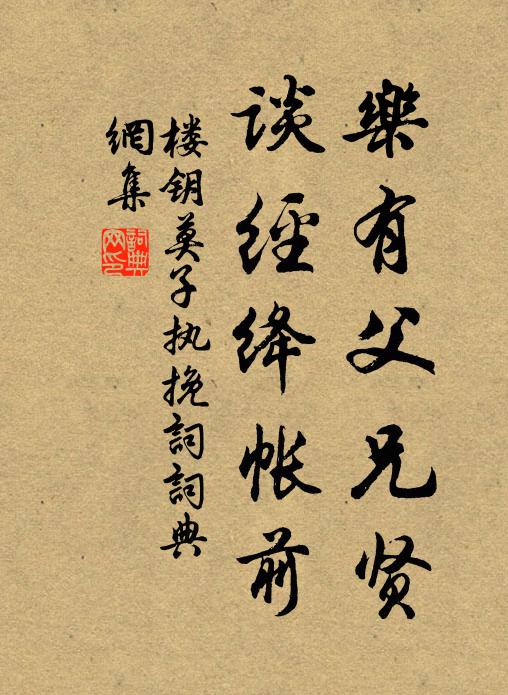 樂有父兄贤
谈經绛帐前
楼钥莫子执挽詞詞典
網集
詞典
网印